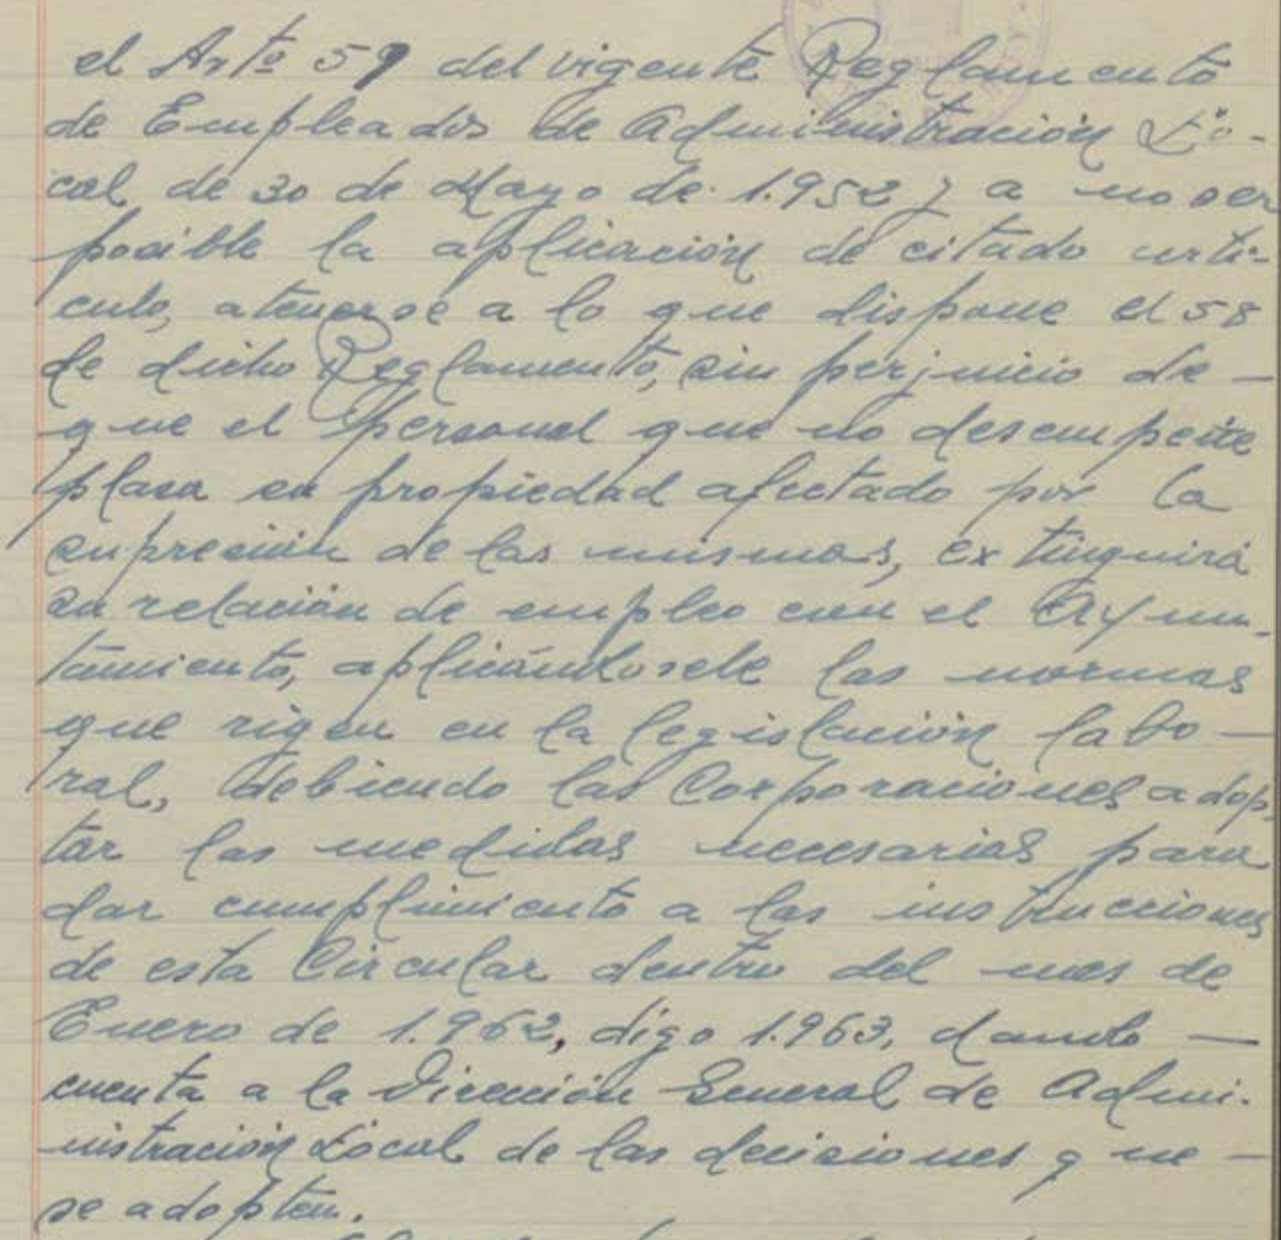 el Artº 59 del vigente Reglamento
de Empleados de Administración Lo-
cal de 30 de Mayo de 1.952 y a no ser
posible la aplicación de citado artí-
culo, atenerse a lo que dispone el 58
de dicho Reglamento, sin perjuicio de -
que el personal que no desempeñe
plaza en propiedad afectado por la
supresión de las mismas, extinguirá
su relación de empleo con el Ayun-
tamiento, aplicándosele las normas
que rigen en la legislación labo-
ral, debiendo las Corporaciones adop-
tar las medidas necesarias para
dar cumplimiento a las instrucciones
de esta Circular dentro del mes de
Enero de 1.962, digo 1.963, dando -
cuenta a la Dirección General de Admi-
nistración Local de las decisiones que -
se adopten.